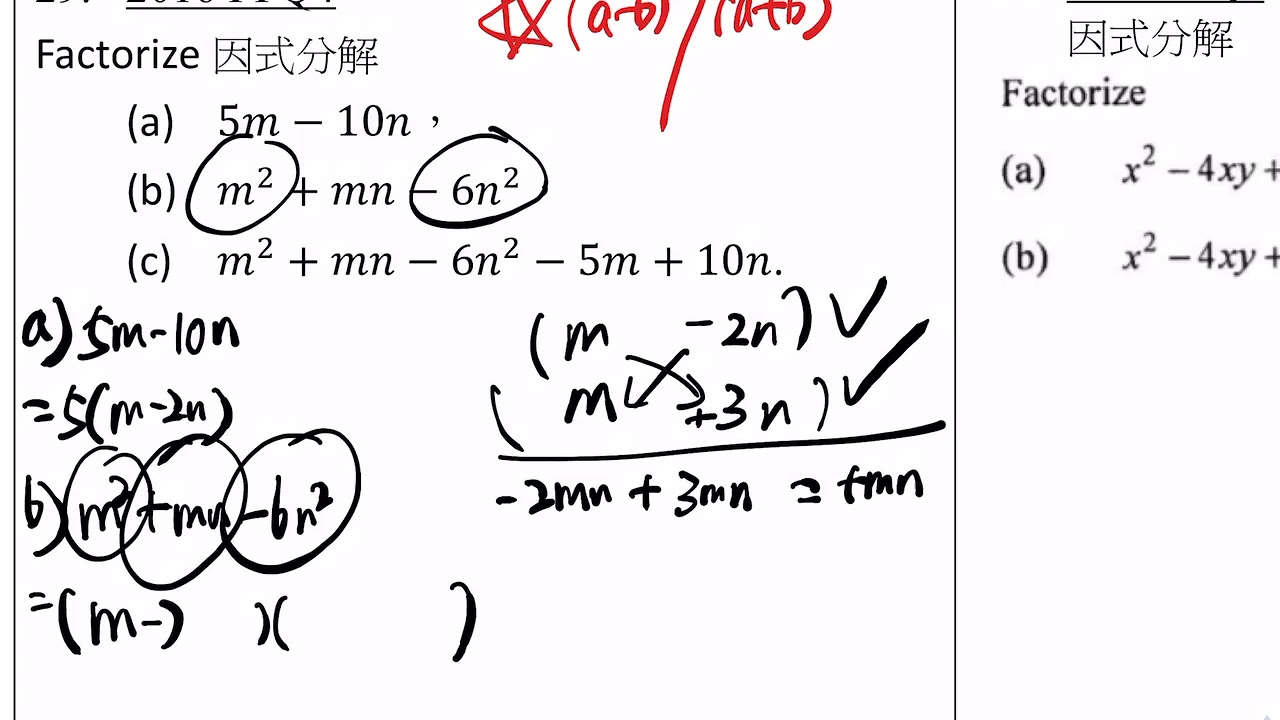 (a-b)/(a+b)
Factorize 因式分解
(a) 5m − 10n，
(b) m² + mn − 6n²
(c) m² + mn − 6n² − 5m + 10n.
a) 5m-10n
= 5(m-2n)
b) m² + mn - 6n²
= (m-) )( )
(m -2n) ✓
( m +3n) ✓
-2mn + 3mn = +mn
因式分解
Factorize
(a) x² − 4xy +
(b) x² − 4xy +